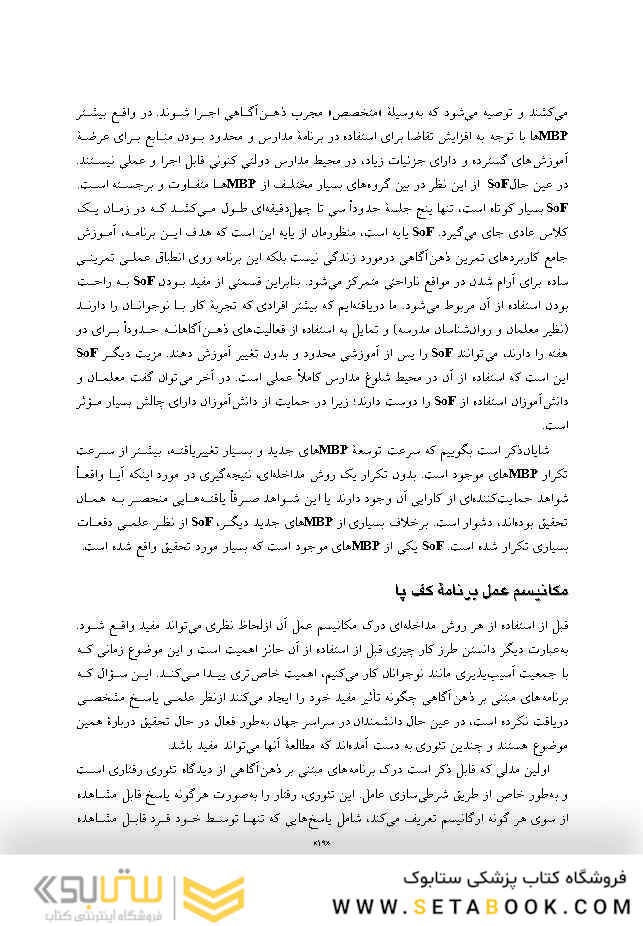 می‌کشند و توصیه می‌شود که به‌وسیلهٔ «متخصص» مجرب ذهن‌آگاهی اجرا شوند. در واقع بیشتر
MBPها با توجه به افزایش تقاضا برای استفاده در برنامهٔ مدارس و محدود بودن منابع برای عرضهٔ
آموزش‌های گسترده و دارای جزئیات زیاد، در محیط مدارس دولتی کنونی قابل اجرا و عملی نیستند.
در عین حال SoF از این نظر در بین گروه‌های بسیار مختلف از MBPها متفاوت و برجسته است.
SoF بسیار کوتاه است، تنها پنج جلسهٔ حدوداً سی تا چهل‌دقیقه‌ای طول می‌کشد که در زمان یک
کلاس عادی جای می‌گیرد. SoF پایه است، منظورمان از پایه این است که هدف این برنامه، آموزش
جامع کاربردهای تمرین ذهن‌آگاهی درمورد زندگی نیست بلکه این برنامه روی انطباق عملی تمرینی
ساده برای آرام شدن در مواقع ناراحتی متمرکز می‌شود. بنابراین قسمتی از مفید بودن SoF به راحت
بودن استفاده از آن مربوط می‌شود. ما دریافته‌ایم که بیشتر افرادی که تجربهٔ کار با نوجوانان را دارند
(نظیر معلمان و روان‌شناسان مدرسه) و تمایل به استفاده از فعالیت‌های ذهن‌آگاهانه حدوداً برای دو
هفته را دارند، می‌توانند SoF را پس از آموزشی محدود و بدون تغییر آموزش دهند. مزیت دیگر SoF
این است که استفاده از آن در محیط شلوغ مدارس کاملاً عملی است. در آخر می‌توان گفت معلمان و
دانش‌آموزان استفاده از SoF را دوست دارند؛ زیرا در حمایت از دانش‌آموزان دارای چالش بسیار مؤثر
است.
شایان‌ذکر است بگوییم که سرعت توسعهٔ MBPهای جدید و بسیار تغییریافته، بیشتر از سرعت
تکرار MBPهای موجود است. بدون تکرار یک روش مداخله‌ای، نتیجه‌گیری در مورد اینکه آیا واقعاً
شواهد حمایت‌کننده‌ای از کارایی آن وجود دارند یا این شواهد صرفاً یافته‌هایی منحصر به همان
تحقیق بوده‌اند، دشوار است. برخلاف بسیاری از MBPهای جدید دیگر، SoF از نظر علمی دفعات
بسیاری تکرار شده است. SoF یکی از MBPهای موجود است که بسیار مورد تحقیق واقع شده است.
مکانیسم عمل برنامهٔ کف پا
قبل از استفاده از هر روش مداخله‌ای درک مکانیسم عمل آن ازلحاظ نظری می‌تواند مفید واقع شود.
به‌عبارت دیگر دانستن طرز کار چیزی قبل از استفاده از آن حائز اهمیت است و این موضوع زمانی که
با جمعیت آسیب‌پذیری مانند نوجوانان کار می‌کنیم، اهمیت خاص‌تری پیدا می‌کند. این سؤال که
برنامه‌های مبتنی بر ذهن‌آگاهی چگونه تأثیر مفید خود را ایجاد می‌کنند ازنظر علمی پاسخ مشخصی
دریافت نکرده است، در عین حال دانشمندان در سراسر جهان به‌طور فعال در حال تحقیق دربارهٔ همین
موضوع هستند و چندین تئوری به دست آمده‌اند که مطالعهٔ آنها می‌تواند مفید باشد.
اولین مدلی که قابل ذکر است درک برنامه‌های مبتنی بر ذهن‌آگاهی از دیدگاه تئوری رفتاری است
و به‌طور خاص از طریق شرطی‌سازی عامل. این تئوری، رفتار را به‌صورت هرگونه پاسخ قابل مشاهده
از سوی هر گونه ارگانیسم تعریف می‌کند، شامل پاسخ‌هایی که تنها توسط خود فرد قابل مشاهده
«۱۹»
فروشگاه کتاب پزشکی ستابوک
WWW.SETABOOK.COM
ستابوک
فروشگاه اینترنتی کتاب